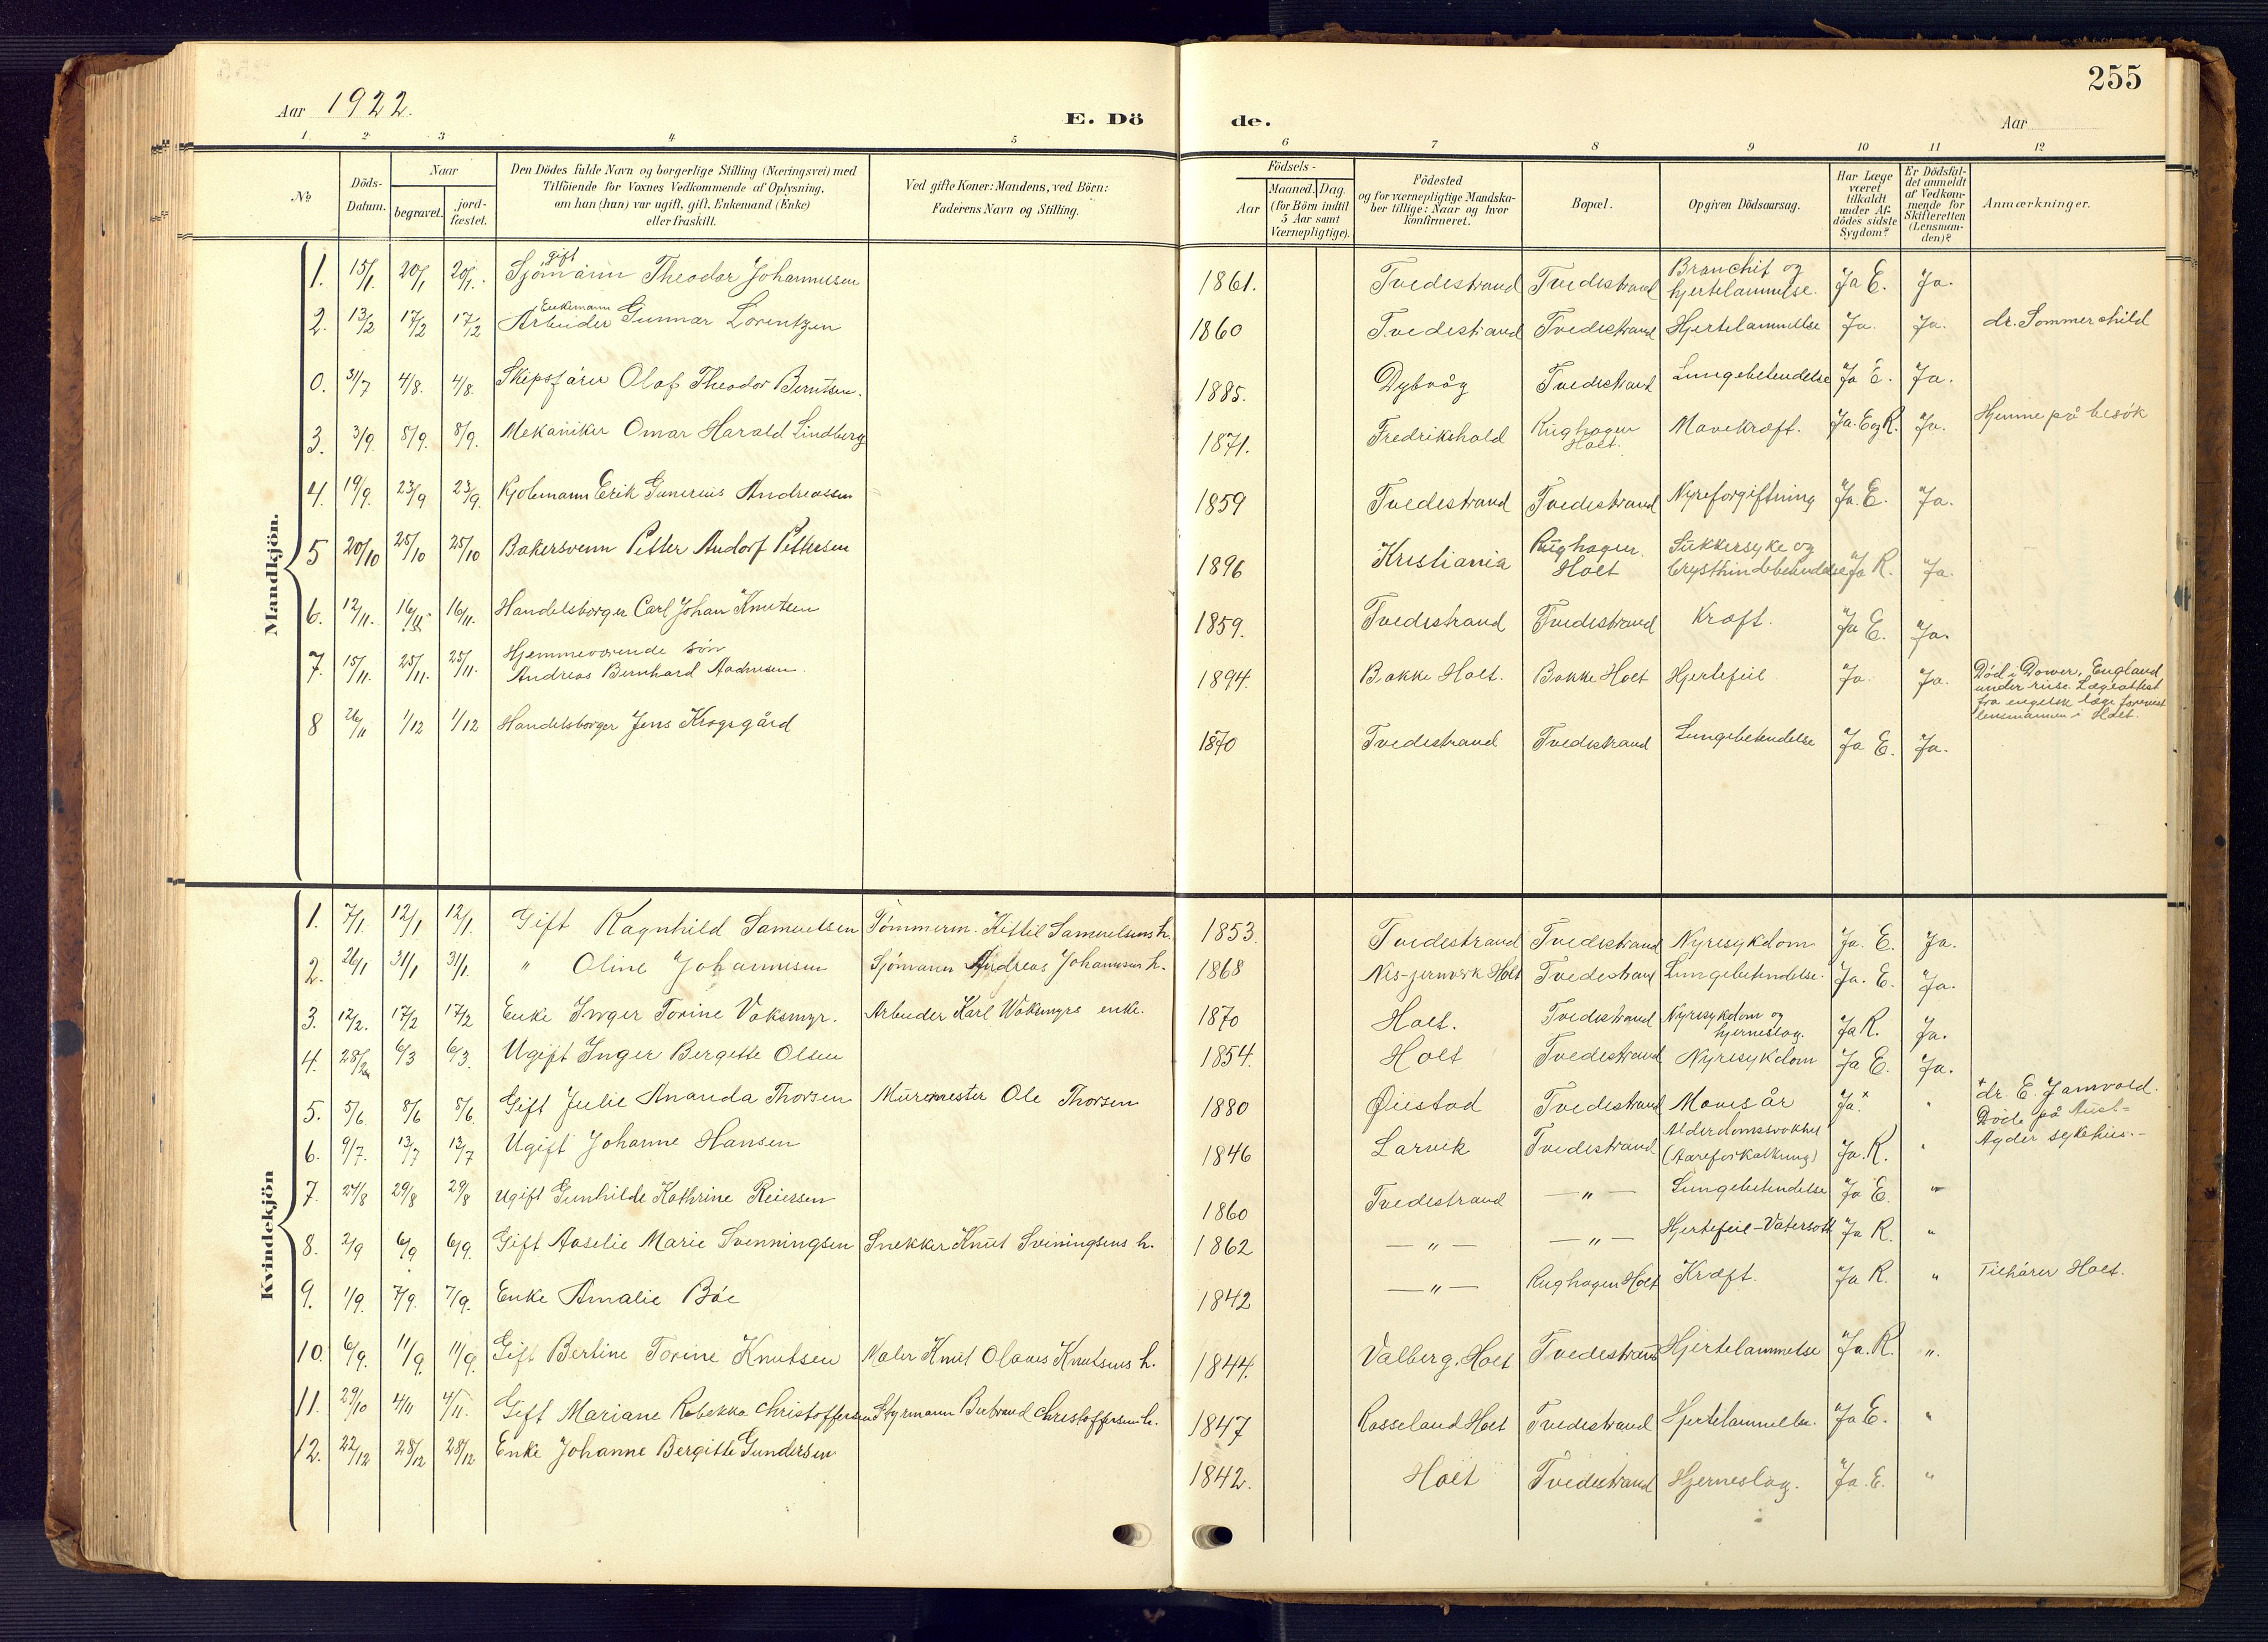 255
Aar 1922.
E. Dö de.
Aar
1 2 3 4 5 6 7 8 9 10 11 12
No
Döds-Datum.
Naar
begravet.
jord-fæstet.
Den Dödes fulde Navn og borgerlige Stilling (Næringsvei) med
Tilföiende for Voxnes Vedkommende af Oplysning,
om han (hun) var ugift, gift, Enkemand (Enke)
eller fraskilt.
Ved gifte Koner: Mandens, ved Börn:
Faderens Navn og Stilling.
Födsels-
Aar
Maaned. Dag.
(for Börn indtil
5 Aar samt
Værnepligtige).
Födested
og for værnepligtige Mandska-
ber tillige: Naar og hvor
konfirmeret.
Bopæl.
Opgiven Dödsaarsag.
Har Læge
været
tilkaldt
under Af-
dödes sidste
Sygdom?
Er Dödsfal-
det anmeldt
af Vedkom-
mende for
Skifteretten
(Lensman-
den)?
Anmærkninger.
Mandkjön.
1. 15/1 20/1 20/1. gift Sjömann Theodor Johannesen 1861. Tvedestrand Tvedestrand Bronchit og hjertelammelse. Ja E. Ja.
2. 13/2 17/2 17/2 Enkemann Arbeider Gunnar Lorentzen 1860 Tvedestrand Tvedestrand Hjertelammelse Ja. Ja. dr. Sommerschild
0. 31/7 4/8. 4/8. Skipsfører Olaf Theodor Berntsen. 1885. Dybvåg Tvedestrand Lungebetendelse Ja E. Ja.
3. 3/9. 8/9. 8/9. Mekaniker Omar Harald Lindberg 1871. Fredrikshald Rughagen Holt. Mavekræft. Ja. E og R. Ja. Hjemme på besøk
4. 19/9. 23/9 23/9. Kjøbmann Erik Gunerius Andreassen 1859 Tvedestrand Tvedestrand Nyreforgiftning Ja. E. Ja.
5 20/10 25/10 25/10 Bakersvenn Petter Andorf Pettersen 1896 Kristiania Rughagen. Holt Sukkersyke og brysthindebetendelse Ja R. Ja.
6. 12/11. 16/11 16/11. Handelsborger Carl Johan Knutsen 1859. Tvedestrand Tvedestrand Kræft. Ja E. Ja.
7. 15/11. 25/11. 25/11. Hjemmeværende søn Andreas Bernhard 1894. Bakke Holt. Bakke Holt Hjertefeil Ja. Ja. Död i Dower, England under reise. Lægeattest fra engelsk læge forevist lensmannen i Holt.
8 26/11 1/12 1/12 Handelsborger Jens Krogsgård 1870 Tvedestrand Tvedestrand Lungebetendelse Ja E. Ja.
Kvindekjön
1. 7/1. 12/1 12/1. Gift Ragnhild Samuelsen Tømmerm. Kittil Samuelsens h. 1853. Tvedestrand Tvedestrand Nyresykdom Ja. E. Ja.
2. 26/1 31/1 31/1. " Oline Johannesen Sjømann Andreas Johannesens h. 1868 Nes-jernverk Holt Tvedestrand Lungebetendelse. Ja. E. Ja.
3. 12/2. 17/2 17/2 Enke Inger Torine Voksmyr. Arbeider Karl Woksmyrs enke. 1870 Holt. Tvedestrand Nyresykdom og hjerneslag. Ja R. Ja.
4. 28/2 6/3 6/3. Ugift Inger Bergette Olsen 1854. Holt Tvedestrand Nyresykdom Ja E. Ja.
5. 5/6. 8/6 8/6 Gift Julie Ananda Thorsen Muremester Ole Thorsen 1880 Øiestad Tvedestrand Mavesår Ja.x " x dr. E. Jamvold. Døde på Aust-Agder sykehus.-
6. 9/7. 13/7 13/7 Ugift Johanne Hansen 1846 Larvik Tvedestrand Alderdomssvakhet (Aareforkalkning) Ja. R. "
7. 24/8 29/8 29/8 Ugift Gunhilde Kathrine Reiersen 1860 Tvedestrand —"— Lungebetendelse Ja E. "
8. 2/9 6/9 6/9. Gift Aaselie Marie Svenningsen Snekker Knut Sveiningsens h. 1862 —"— —"— Hjertefeil-Vatersott Ja R. "
9. 1/9. 7/9. 7/9. Enke Amalie Bøe 1842 —"— Rughagen Holt Kræft. Ja R. " Tilhører Holt.
10. 6/9. 11/9 11/9. Gift Bertine Torine Knutsen Maler Knut Olaves Knutsens h. 1844. Valberg, Holt Tvedestrand Hjertelammelse Ja. R. ".
11. 29/10 4/11 4/11. Gift Mariane Rebekka Christoffersen Styrmann Bertrand Christoffersens h. 1847 Rosseland Holt Tvedestrand Hjertelammelse. Ja E. "
12. 22/12 28/12 28/12 Enke Johanne Bergitte Gundersen 1842. Holt Tvedestrand Hjerneslag. Ja. E. "